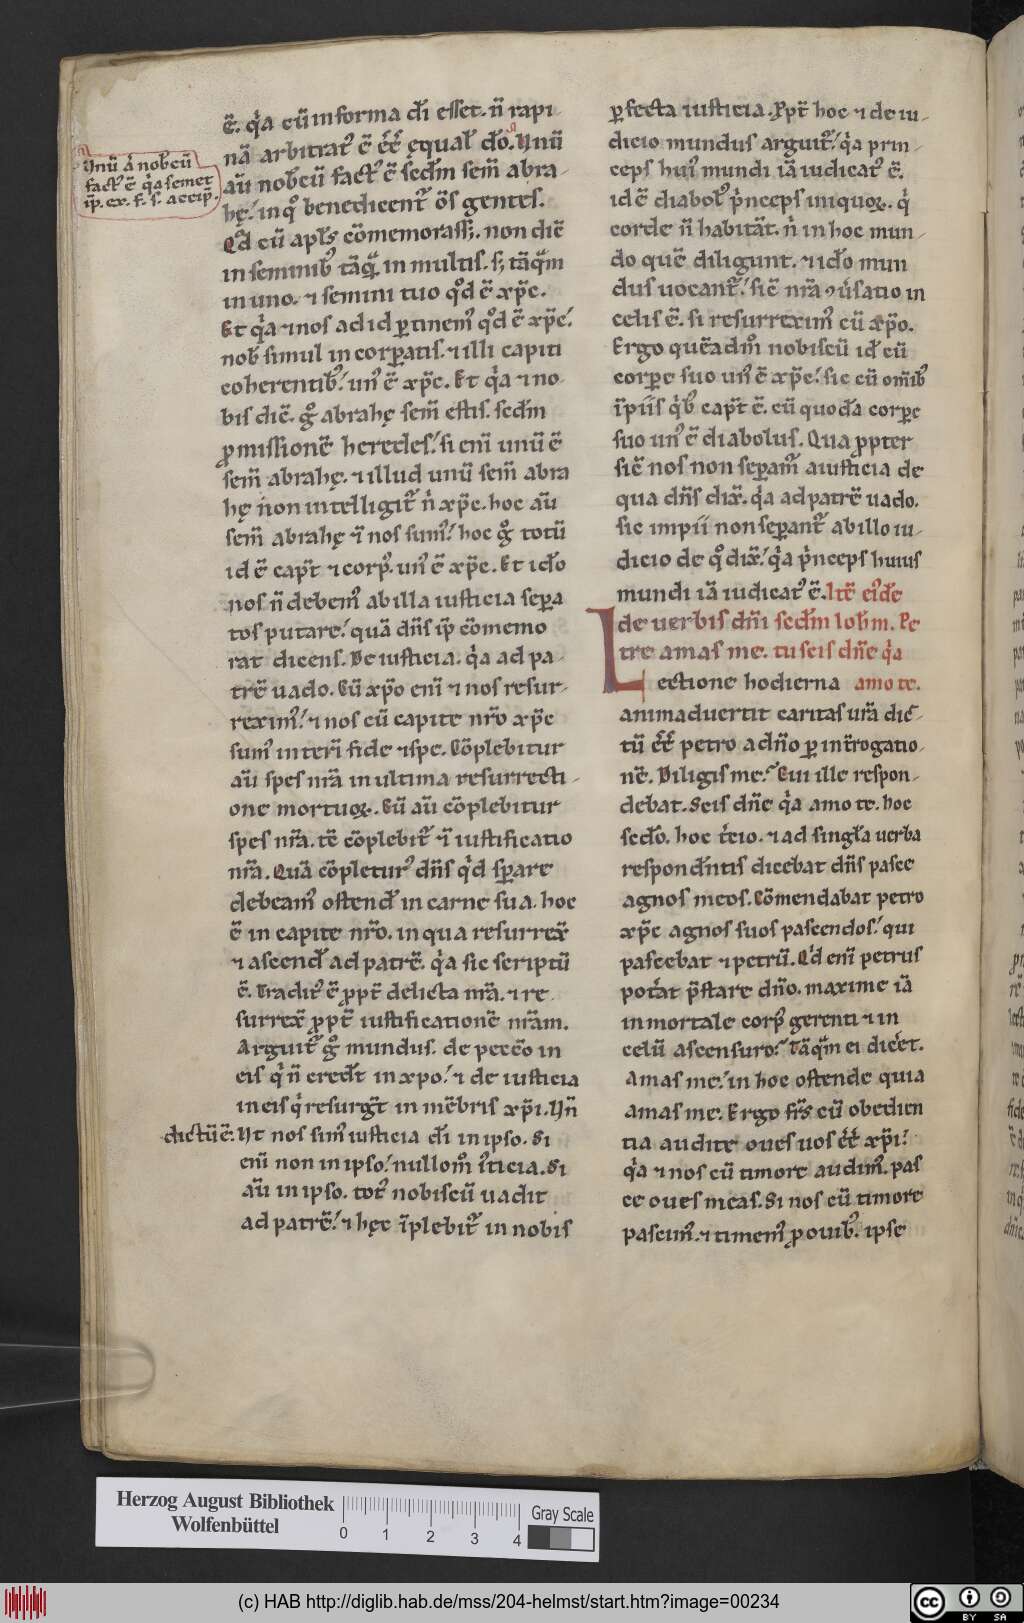 Unū ā nob̄cū
fact᷒ ē q̇a semet
ip̄. ex. f. s. accip̄.
ē. q̇a cū in forma d̄i esset. n̄ rapi-
nā arbitrat᷒ ē ēē ęqual̄ d̄o. Unū
aū nob̄cū fact᷒ ē sed̄m sem̄ abra-
hę. in qͦ benedicent᷑ ōs gentes.
Qd̄ cū ap̄l̄s cōmemorass;. non diē
in seminib᷒ tāq̄ in multis. s; tāq̄m
in uno. ⁊ semini tuo qͦd ē xp̄c.
Et q̇a ⁊ nos ad id ꝑtinem᷒ qͦd ē xp̄c.
nob̄ simul incorꝑatis. ⁊ illi capiti
coherentib᷒. un᷒ ē xp̄c. Et q̇a ⁊ no-
bis dic̄. gͦ abrahę sem̄ estis. sed̄m
ꝓmissionē heredes. si eni̅ unū ē
sem̄ abrahę. ⁊ illud unū sem̄ abra
hę non intelligit᷑ n̄ xp̄c. hoc aū
sem̄ abrahę ⁊ nos sum᷒. hoc gͦ totū
id ē cap̄t ⁊ corp᷒. un᷒ ē xp̄c. Et id̄o
nos n̄ debem᷒ ab illa iusticia seꝑa
tos putare. quā dn̄s ip̄ cōmemo
rat dicens. De iusticia. q̇a ad pa-
trē uado. Cū xp̄o eni̅ ⁊ nos resur-
rexim᷒. ⁊ nos cū capite nr̄o xp̄c
sum᷒ interi̅ fide ⁊ spe. Cōplebitur
aū spes nr̄a in ultima resurrecti-
one mortuoꝝ. Cū aū cōplebitur
spes nr̄a. tc̄ cōplebit᷑ ⁊ iustificatio
nr̄a. Quā cōpletur᷒ dn̄s q̇d sꝑare
debeam᷒ ostend̄ in carne sua. hoc
ē in capite nr̄o. in qua resurrex̄
⁊ ascend̄ ad patrē. q̇a sic scriptū
ē. Tradit᷒ ē ꝓpt̄ delicta nr̄a. ⁊ re
surrex̄ ꝓpt̄ iustificationē nr̄am.
Arguit᷑ gͦ mundus. de pecc̄o in
eis q̇ n̄ cred̄t in xp̄o. ⁊ de iusticia
in eis q̇ resurgt̄ in mēbris xp̄i. Un̄
dictū ē. Ut nos sim᷒ iusticia d̄i in ipso. Si
eni̅ non in ipso. nullomͦ iusticia. Si
aū in ipso. tot᷒ nobiscū uadit
ad patrē. ⁊ hęc i̅plebit᷑ in nobis
ꝑfecta iusticia. Ppt̄ hoc ⁊ de iu-
dicio mundus arguit᷑. q̇a prin-
ceps hui᷒ mundi iā iudicat᷒ ē.
id ē diabol᷒ ṗnceps iniquoꝝ. q̇
corde n̄ habitāt. n̄ in hoc mun-
do quē diligunt. ⁊ id̄o mun
dus uocant᷑. sic̄ nr̄a ꝯu̇satio in
celis ē. si resurrexim᷒ cū xp̄o.
Ergo quēadmͦ nobiscū id̄ cū
corꝑe suo un᷒ ē xp̄c. sic cū omīb᷒
i̅piis q̇b᷒ cap̄t ē. cū quod̄a corꝑe
suo un᷒ ē diabolus. Qua ꝓpter
sic̄ nos non seꝑam᷑ a iusticia de
qua dn̄s dix̄. q̇a ad patrē uado.
sic impii non seꝑant᷑ ab illo iu-
dicio de qͦ dix̄. q̇a ṗnceps huius
mundi iā iudicat᷒ ē. Itē ei᷒de
de uerbis dn̄i sed̄m Ioh̄m. Pe
tre amas me. tu scis dn̄e q̇a
Lectione hodierna amo te.
animaduertit caritas ur̄a dic-
tū ēē petro a dn̄o ꝑ int̄rogatio-
nē. Diligis me. Cui ille respon-
debat. Scis dn̄e q̇a amo te. hoc
sed̄o. hoc t̄cio. ⁊ ad singl̄a uerba
respond̄ntis dicebat dn̄s pasce
agnos meos. Cōmendabat petro
xp̄c agnos suos pascendos. qui
pascebat ⁊ petrū. Q̇d eni̅ petrus
pot̄at p̄stare dn̄o. maxime iā
inmortale corp᷒ gerenti ⁊ in
celū ascensuro. Tāq̄m ei dic̄et.
Amas me. in hoc ostende quia
amas me. Ergo fr̄s cū obedien
tia audite oues uos ēē xp̄i.
q̇a ⁊ nos cū timore audim᷒. pas
ce oues meas. Si nos cū timore
pascim᷒. ⁊ timem᷒ ꝓ ouib᷒. ipse
Herzog August Bibliothek
Wolfenbüttel
0 1 2 3 4
Gray Scale
(c) HAB http://diglib.hab.de/mss/204-helmst/start.htm?image=00234
cc BY SA